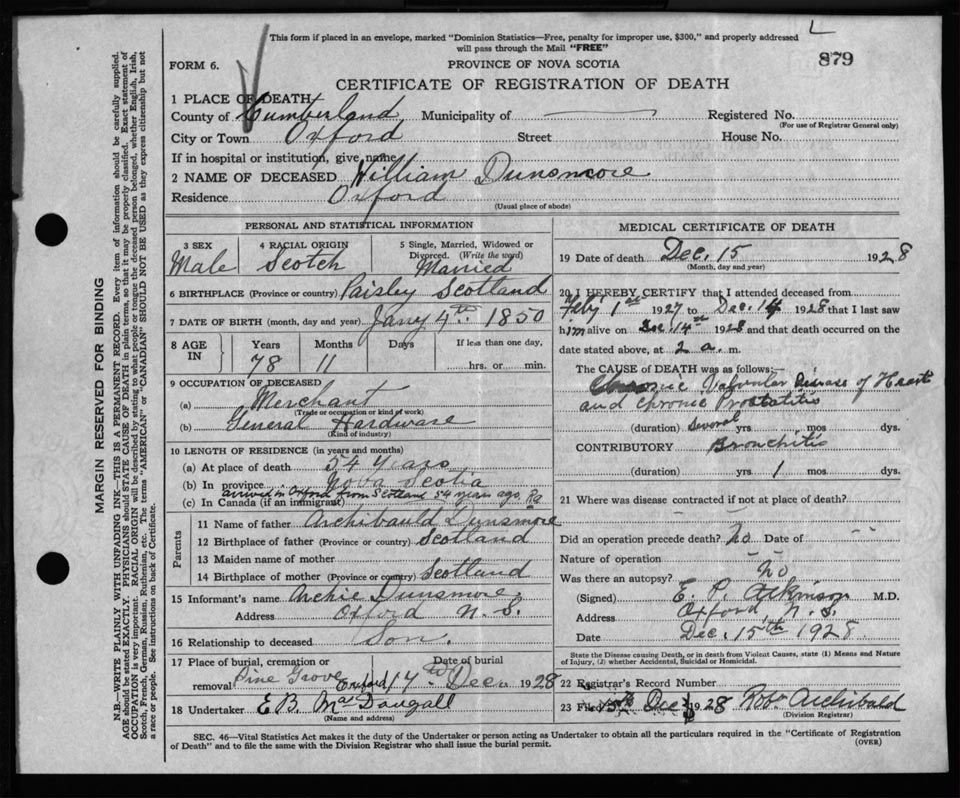 This form if placed in an envelope, marked "Dominion Statistics—Free, penalty for improper use, $300," and properly addressed
will pass through the Mail "FREE"
L
879
FORM 6.
PROVINCE OF NOVA SCOTIA
CERTIFICATE OF REGISTRATION OF DEATH
1 PLACE OF DEATH
County of Cumberland Municipality of — Registered No.
(For use of Registrar General only)
City or Town Oxford Street House No.
If in hospital or institution, give name
2 NAME OF DECEASED William Dunsmore
Residence Oxford
(Usual place of abode)
PERSONAL AND STATISTICAL INFORMATION
3 SEX
Male
4 RACIAL ORIGIN
Scotch
5 Single, Married, Widowed or
Divorced. (Write the word)
Married
6 BIRTHPLACE (Province or country) Paisley Scotland
7 DATE OF BIRTH (month, day and year) Jany 4th 1850
8 AGE IN
Years Months Days If less than one day,
78 11 hrs. or min.
9 OCCUPATION OF DECEASED
(a) Merchant
(Trade or occupation or kind of work)
(b) General Hardware
(Kind of industry)
10 LENGTH OF RESIDENCE (in years and months)
(a) At place of death 54 years
(b) In province Nova Scotia
(c) In Canada (if an immigrant) arrived in Oxford from Scotland 54 years ago.
Parents
11 Name of father Archibauld Dunsmore
12 Birthplace of father (Province or country) Scotland
13 Maiden name of mother
14 Birthplace of mother (Province or country) Scotland
15 Informant's name Archie Dunsmore
Address Oxford N.S.
16 Relationship to deceased Son.
17 Place of burial, cremation or
removal Pine Grove Date of burial
17 Dec. 1928
18 Undertaker E B. McDougall
(Name and address)
MEDICAL CERTIFICATE OF DEATH
19 Date of death Dec. 15 1928
(Month, day and year)
20 I HEREBY CERTIFY that I attended deceased from
Feby 1st 1927 to Dec. 14 1928 that I last saw
him alive on Dec 14th 1928 and that death occurred on the
date stated above, at 2 a. m.
The CAUSE of DEATH was as follows:—
Chronic Valvular Disease of Heart
and Chronic Prostatitis
(duration) Several yrs. mos. dys.
CONTRIBUTORY Bronchitis
(duration) yrs. 1 mos. dys.
21 Where was disease contracted if not at place of death?
Did an operation precede death? no Date of - -
Nature of operation - -
Was there an autopsy? no
(Signed) E. P. Atkinson M.D.
Address Oxford N. S.
Date Dec. 15th 1928
State the Disease causing Death, or in death from Violent Causes, state (1) Means and Nature
of Injury, (2) whether Accidental, Suicidal or Homicidal.
22 Registrar's Record Number
23 Filed 15th Dec 1928 Robt Archibald
(Division Registrar)
SEC. 46—Vital Statistics Act makes it the duty of the Undertaker or person acting as Undertaker to obtain all the particulars required in the "Certificate of Registration
of Death" and to file the same with the Division Registrar who shall issue the burial permit.
(OVER)
MARGIN RESERVED FOR BINDING
N.B.—WRITE PLAINLY WITH UNFADING INK—THIS IS A PERMANENT RECORD. Every item of information should be carefully supplied.
AGE should be stated EXACTLY. PHYSICIANS should STATE CAUSE OF DEATH in plain terms, so that it may be properly classified. Exact statement of
OCCUPATION is very important. RACIAL ORIGIN will be described by stating to what people or tongue the deceased person belonged, whether English, Irish,
Scotch, French, German, Russian, Ruthenian, etc. The terms "AMERICAN" or "CANADIAN" SHOULD NOT BE USED as they express citizenship but not
a race or people. See instructions on back of Certificate.